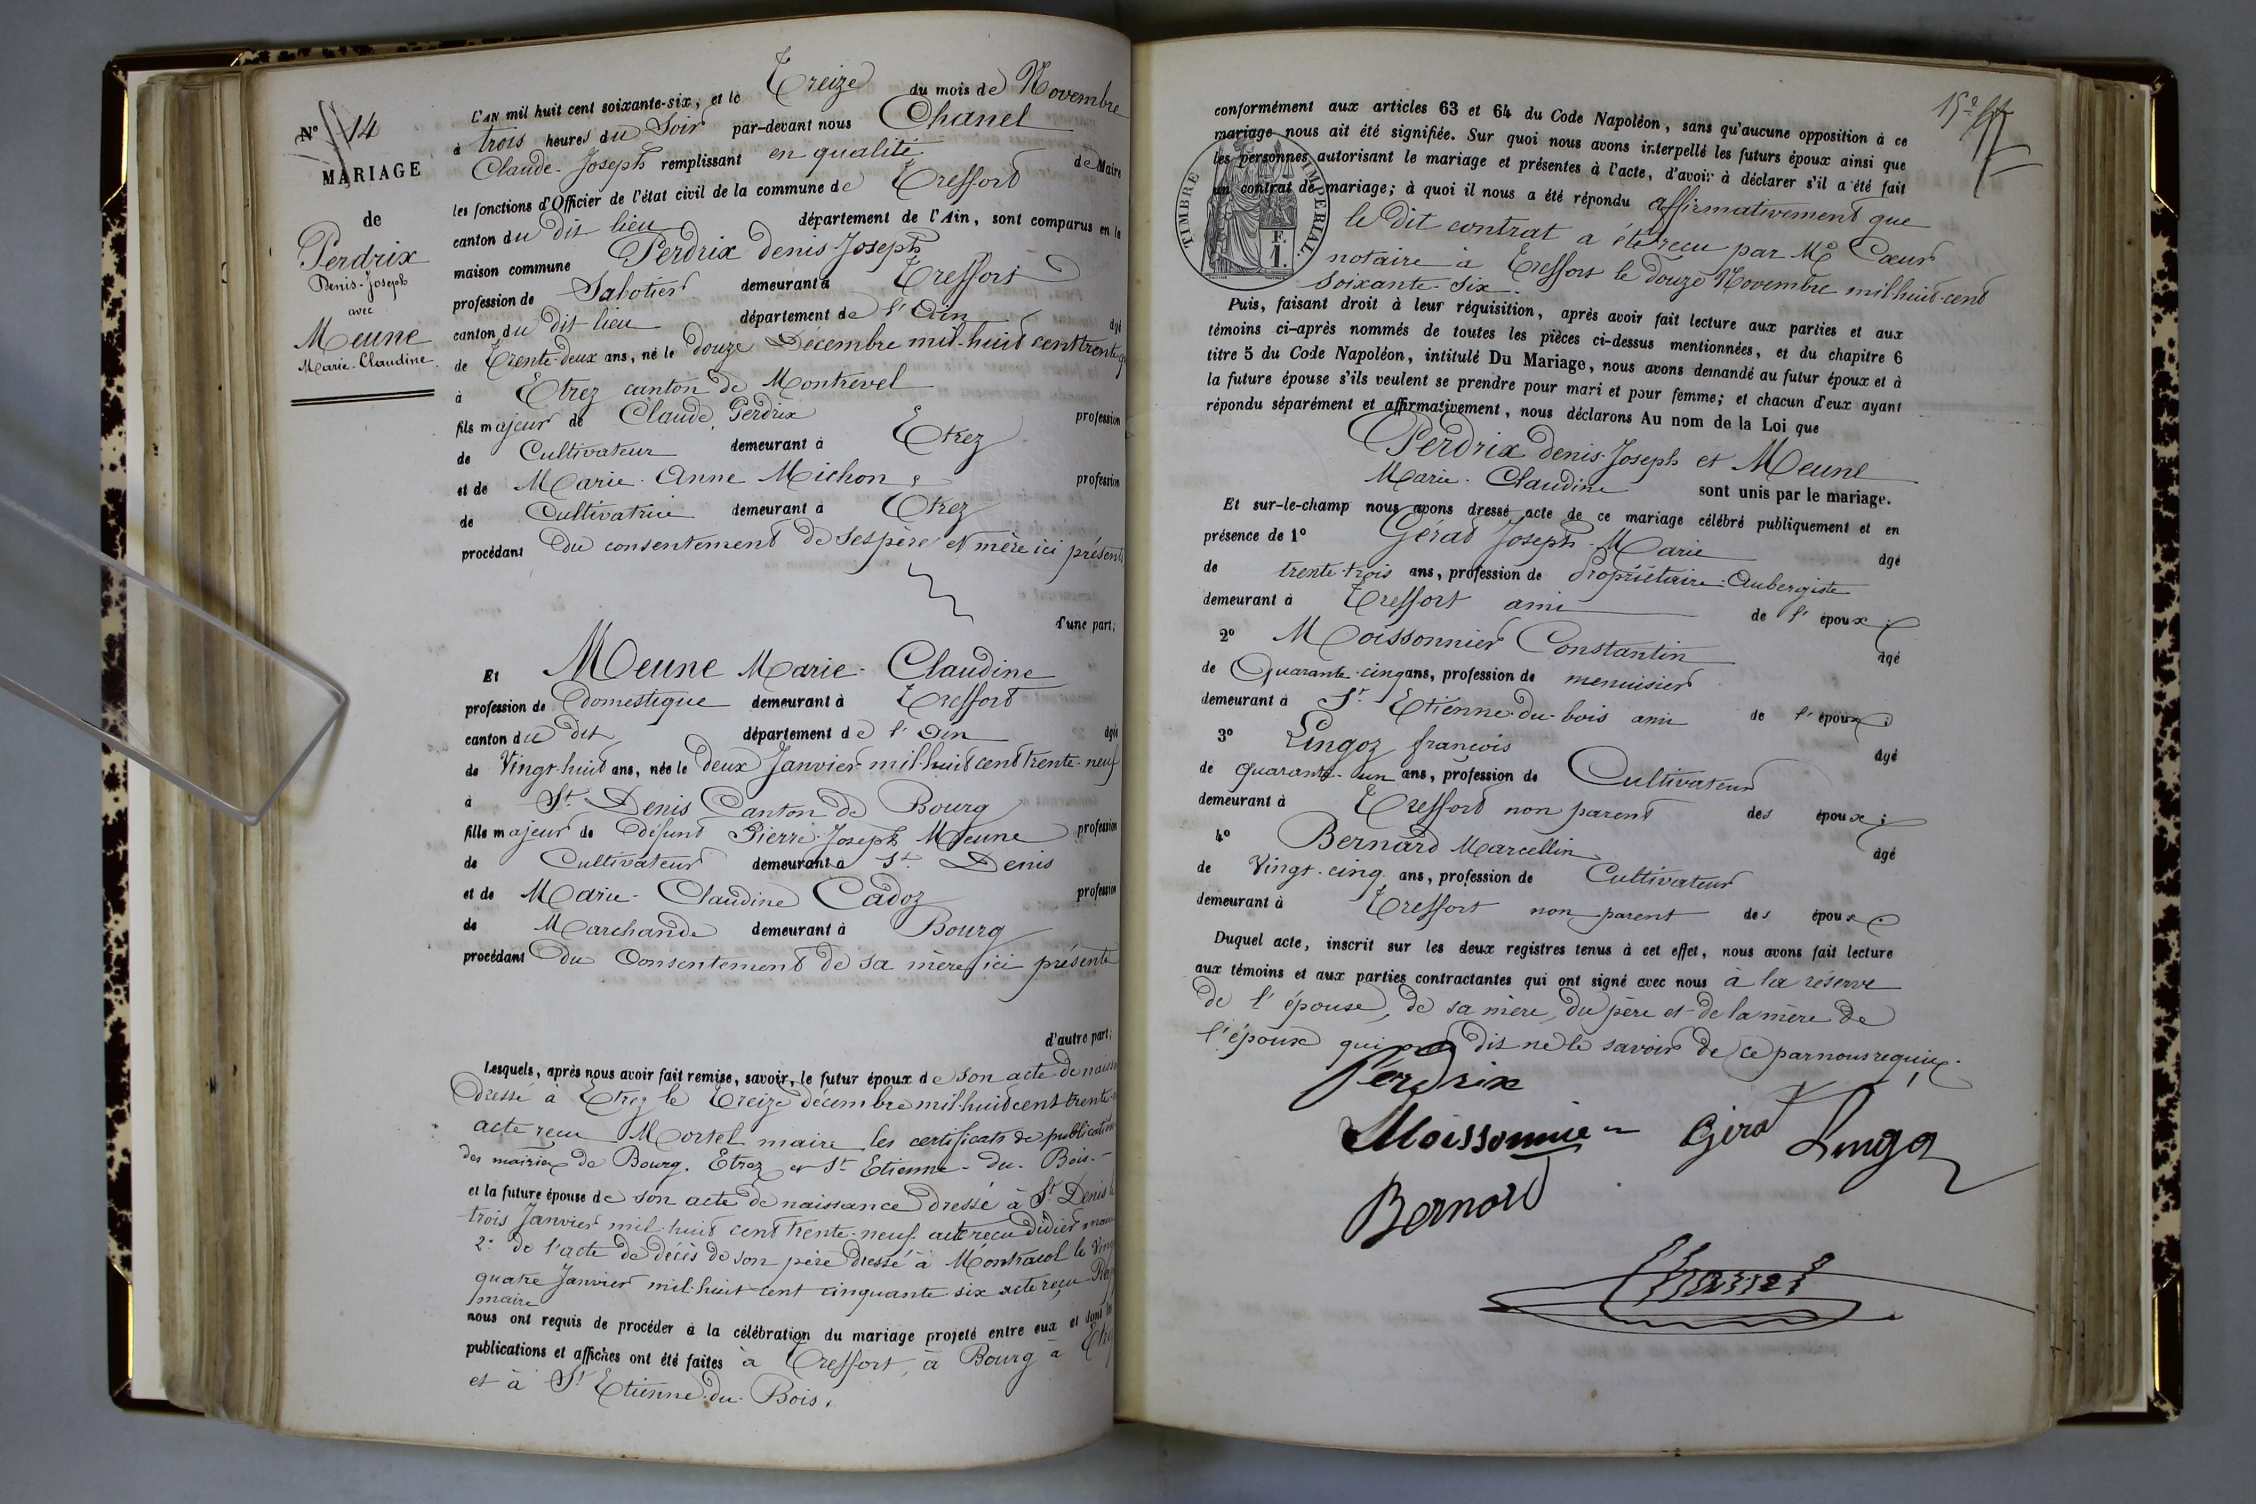 N° 14
MARIAGE
de
Perdrix
Denis-Joseph
avec
Meune
Marie-Claudine
L'AN mil huit cent soixante-six, et le Treize du mois de Novembre
à trois heures du Soir par-devant nous Chanel
Claude-Joseph remplissant en qualité de Maire
les fonctions d'Officier de l'état civil de la commune de Treffort
canton du dit lieu département de l'Ain, sont comparus en la
maison commune Perdrix denis-Joseph
profession de Sabotier demeurant à Treffort
canton du dit-lieu département de l'Ain âgé
de Trente-deux ans, né le douze Décembre mil-huit cent trente
à Etrez canton de Montrevel
fils majeur de Claude Perdrix profession
de Cultivateur demeurant à Etrez
et de Marie-Anne Michon profession
de Cultivatrice demeurant à Etrez
procédant du consentement de ses père et mère ici présents
d'une part;
Et Meune Marie-Claudine
profession de domestique demeurant à Treffort
canton du dit département de l'Ain âgée
de Vingt-huit ans, née le deux Janvier mil-huit cent trente-neuf
à St Denis Canton de Bourg
fille majeur de défunt Pierre-Joseph Meune profession
de Cultivateur demeurant à St Denis
et de Marie-Claudine Cadoz profession
de Marchande demeurant à Bourg
procédant du Consentement de sa mère ici présente
d'autre part;
Lesquels, après nous avoir fait remise, savoir, le futur époux de son acte de
dressé à Etrez le Treize décembre mil-huit cent trente
acte reçu Mortel maire les certificats de publication
des mairies de Bourg. Etrez et St Etienne-du-Bois.-
et la future épouse de son acte de naissance dressé à St Denis le
trois Janvier mil-huit cent trente-neuf acte reçu Didier maire
2° de l'acte de décès de son père dressé à Montracol le Vingt
quatre Janvier mil-huit-cent cinquante six acte reçu
maire
nous ont requis de procéder à la célébration du mariage projeté entre eux et dont les
publications et affiches ont été faites à Treffort, à Bourg à Etrez
et à St Etienne-du-Bois.
conformément aux articles 63 et 64 du Code Napoléon, sans qu'aucune opposition à ce
mariage nous ait été signifiée. Sur quoi nous avons interpellé les futurs époux ainsi que
les personnes autorisant le mariage et présentes à l'acte, d'avoir à déclarer s'il a été fait
un contrat de mariage; à quoi il nous a été répondu affirmativement que
TIMBRE IMPERIAL.
F.
1.
le dit contrat a été reçu par Me Cœur
notaire à Treffort le douze Novembre mil huit-cent
soixante-six.
Puis, faisant droit à leur réquisition, après avoir fait lecture aux parties et aux
témoins ci-après nommés de toutes les pièces ci-dessus mentionnées, et du chapitre 6
titre 5 du Code Napoléon, intitulé Du Mariage, nous avons demandé au futur époux et à
la future épouse s'ils veulent se prendre pour mari et pour femme; et chacun d'eux ayant
répondu séparément et affirmativement, nous déclarons Au nom de la Loi que
Perdrix denis-Joseph et Meune
Marie-Claudine sont unis par le mariage.
Et sur-le-champ nous avons dressé acte de ce mariage célébré publiquement et en
présence de 1° Gérad Joseph-Marie âgé
de trente-trois ans, profession de Propriétaire-Aubergiste
demeurant à Treffort ami de l'époux;
2° Moissonnier Constantin âgé
de Quarante-cinq ans, profession de menuisier
demeurant à St Etienne-du-bois ami de l'époux;
3° Lingoz françois âgé
de quarante-un ans, profession de Cultivateur
demeurant à Treffort non parent des époux;
4° Bernard Marcellin âgé
de Vingt-cinq ans, profession de Cultivateur
demeurant à Treffort non parent des époux.
Duquel acte, inscrit sur les deux registres tenus à cet effet, nous avons fait lecture
aux témoins et aux parties contractantes qui ont signé avec nous à la réserve
de l'épouse, de sa mère, du père et de la mère de
l'époux qui ont dit ne le savoir de ce par nous requis.
Perdrix
Moissonnier Gira Lingoz
Bernard
Chanel